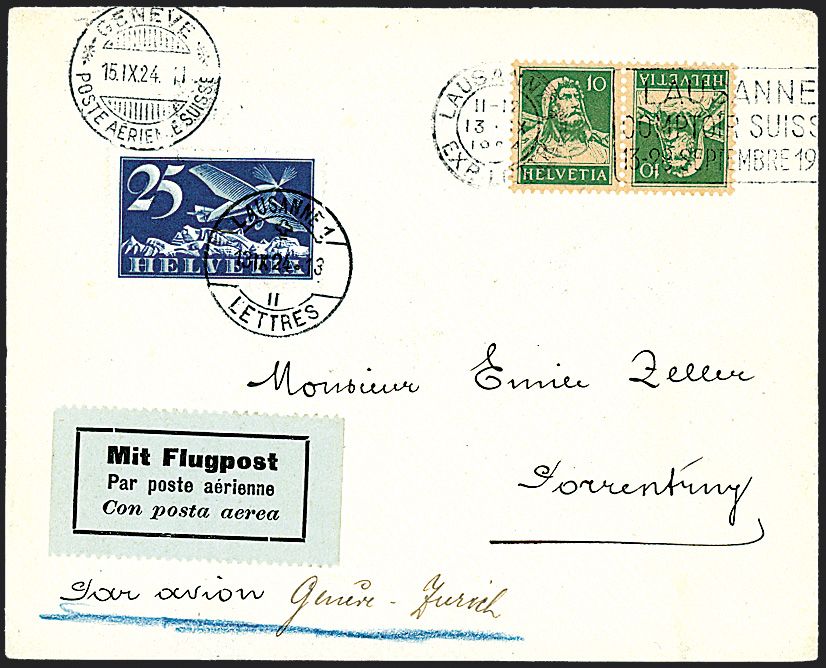 GENÈVE
15.IX.24.
POSTE AÉRIENNE SUISSE
LAUSANNE
11-12
13.
EXP. LET
10
HELVETIA
HELVETIA
10
LAUSANNE
COMPTOIR SUISSE
13-28 SEPTEMBRE 19
25
HELVETIA
LAUSANNE 1
13.IX.24.-13
II
LETTRES
Monsieur Emile Zeller
Porrentruy
Mit Flugpost
Par poste aérienne
Con posta aerea
Par avion Genève - Zurich